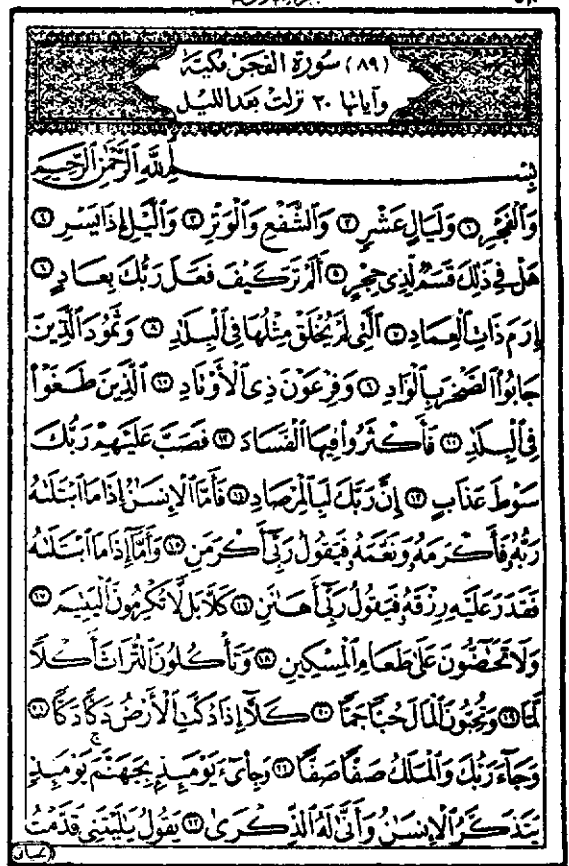 (٨٩) سُورَةُ الفَجْرِ مَكِّيَّةٌ
وَآيَاتُهَا ٣٠ نَزَلَتْ بَعْدَ اللَّيْلِ
بِسْمِ ٱللَّهِ ٱلرَّحْمَٰنِ ٱلرَّحِيمِ
وَٱلْفَجْرِ ١ وَلَيَالٍ عَشْرٍ ٢ وَٱلشَّفْعِ وَٱلْوَتْرِ ٣ وَٱلَّيْلِ إِذَا يَسْرِ ٤
هَلْ فِي ذَٰلِكَ قَسَمٌ لِّذِي حِجْرٍ ٥ أَلَمْ تَرَ كَيْفَ فَعَلَ رَبُّكَ بِعَادٍ ٦
إِرَمَ ذَاتِ ٱلْعِمَادِ ٧ ٱلَّتِي لَمْ يُخْلَقْ مِثْلُهَا فِي ٱلْبِلَٰدِ ٨ وَثَمُودَ ٱلَّذِينَ
جَابُوا۟ ٱلصَّخْرَ بِٱلْوَادِ ٩ وَفِرْعَوْنَ ذِي ٱلْأَوْتَادِ ١٠ ٱلَّذِينَ طَغَوْا۟
فِي ٱلْبِلَٰدِ ١١ فَأَكْثَرُوا۟ فِيهَا ٱلْفَسَادَ ١٢ فَصَبَّ عَلَيْهِمْ رَبُّكَ
سَوْطَ عَذَابٍ ١٣ إِنَّ رَبَّكَ لَبِٱلْمِرْصَادِ ١٤ فَأَمَّا ٱلْإِنسَٰنُ إِذَا مَا ٱبْتَلَىٰهُ
رَبُّهُۥ فَأَكْرَمَهُۥ وَنَعَّمَهُۥ فَيَقُولُ رَبِّيٓ أَكْرَمَنِ ١٥ وَأَمَّآ إِذَا مَا ٱبْتَلَىٰهُ
فَقَدَرَ عَلَيْهِ رِزْقَهُۥ فَيَقُولُ رَبِّيٓ أَهَٰنَنِ ١٦ كَلَّا بَل لَّا تُكْرِمُونَ ٱلْيَتِيمَ ١٧
وَلَا تَحَٰٓضُّونَ عَلَىٰ طَعَامِ ٱلْمِسْكِينِ ١٨ وَتَأْكُلُونَ ٱلتُّرَاثَ أَكْلًا
لَّمًّا ١٩ وَتُحِبُّونَ ٱلْمَالَ حُبًّا جَمًّا ٢٠ كَلَّآ إِذَا دُكَّتِ ٱلْأَرْضُ دَكًّا دَكًّا ٢١
وَجَآءَ رَبُّكَ وَٱلْمَلَكُ صَفًّا صَفًّا ٢٢ وَجِا۟يٓءَ يَوْمَئِذٍۭ بِجَهَنَّمَ يَوْمَئِذٍ
يَتَذَكَّرُ ٱلْإِنسَٰنُ وَأَنَّىٰ لَهُ ٱلذِّكْرَىٰ ٢٣ يَقُولُ يَٰلَيْتَنِي قَدَّمْتُ